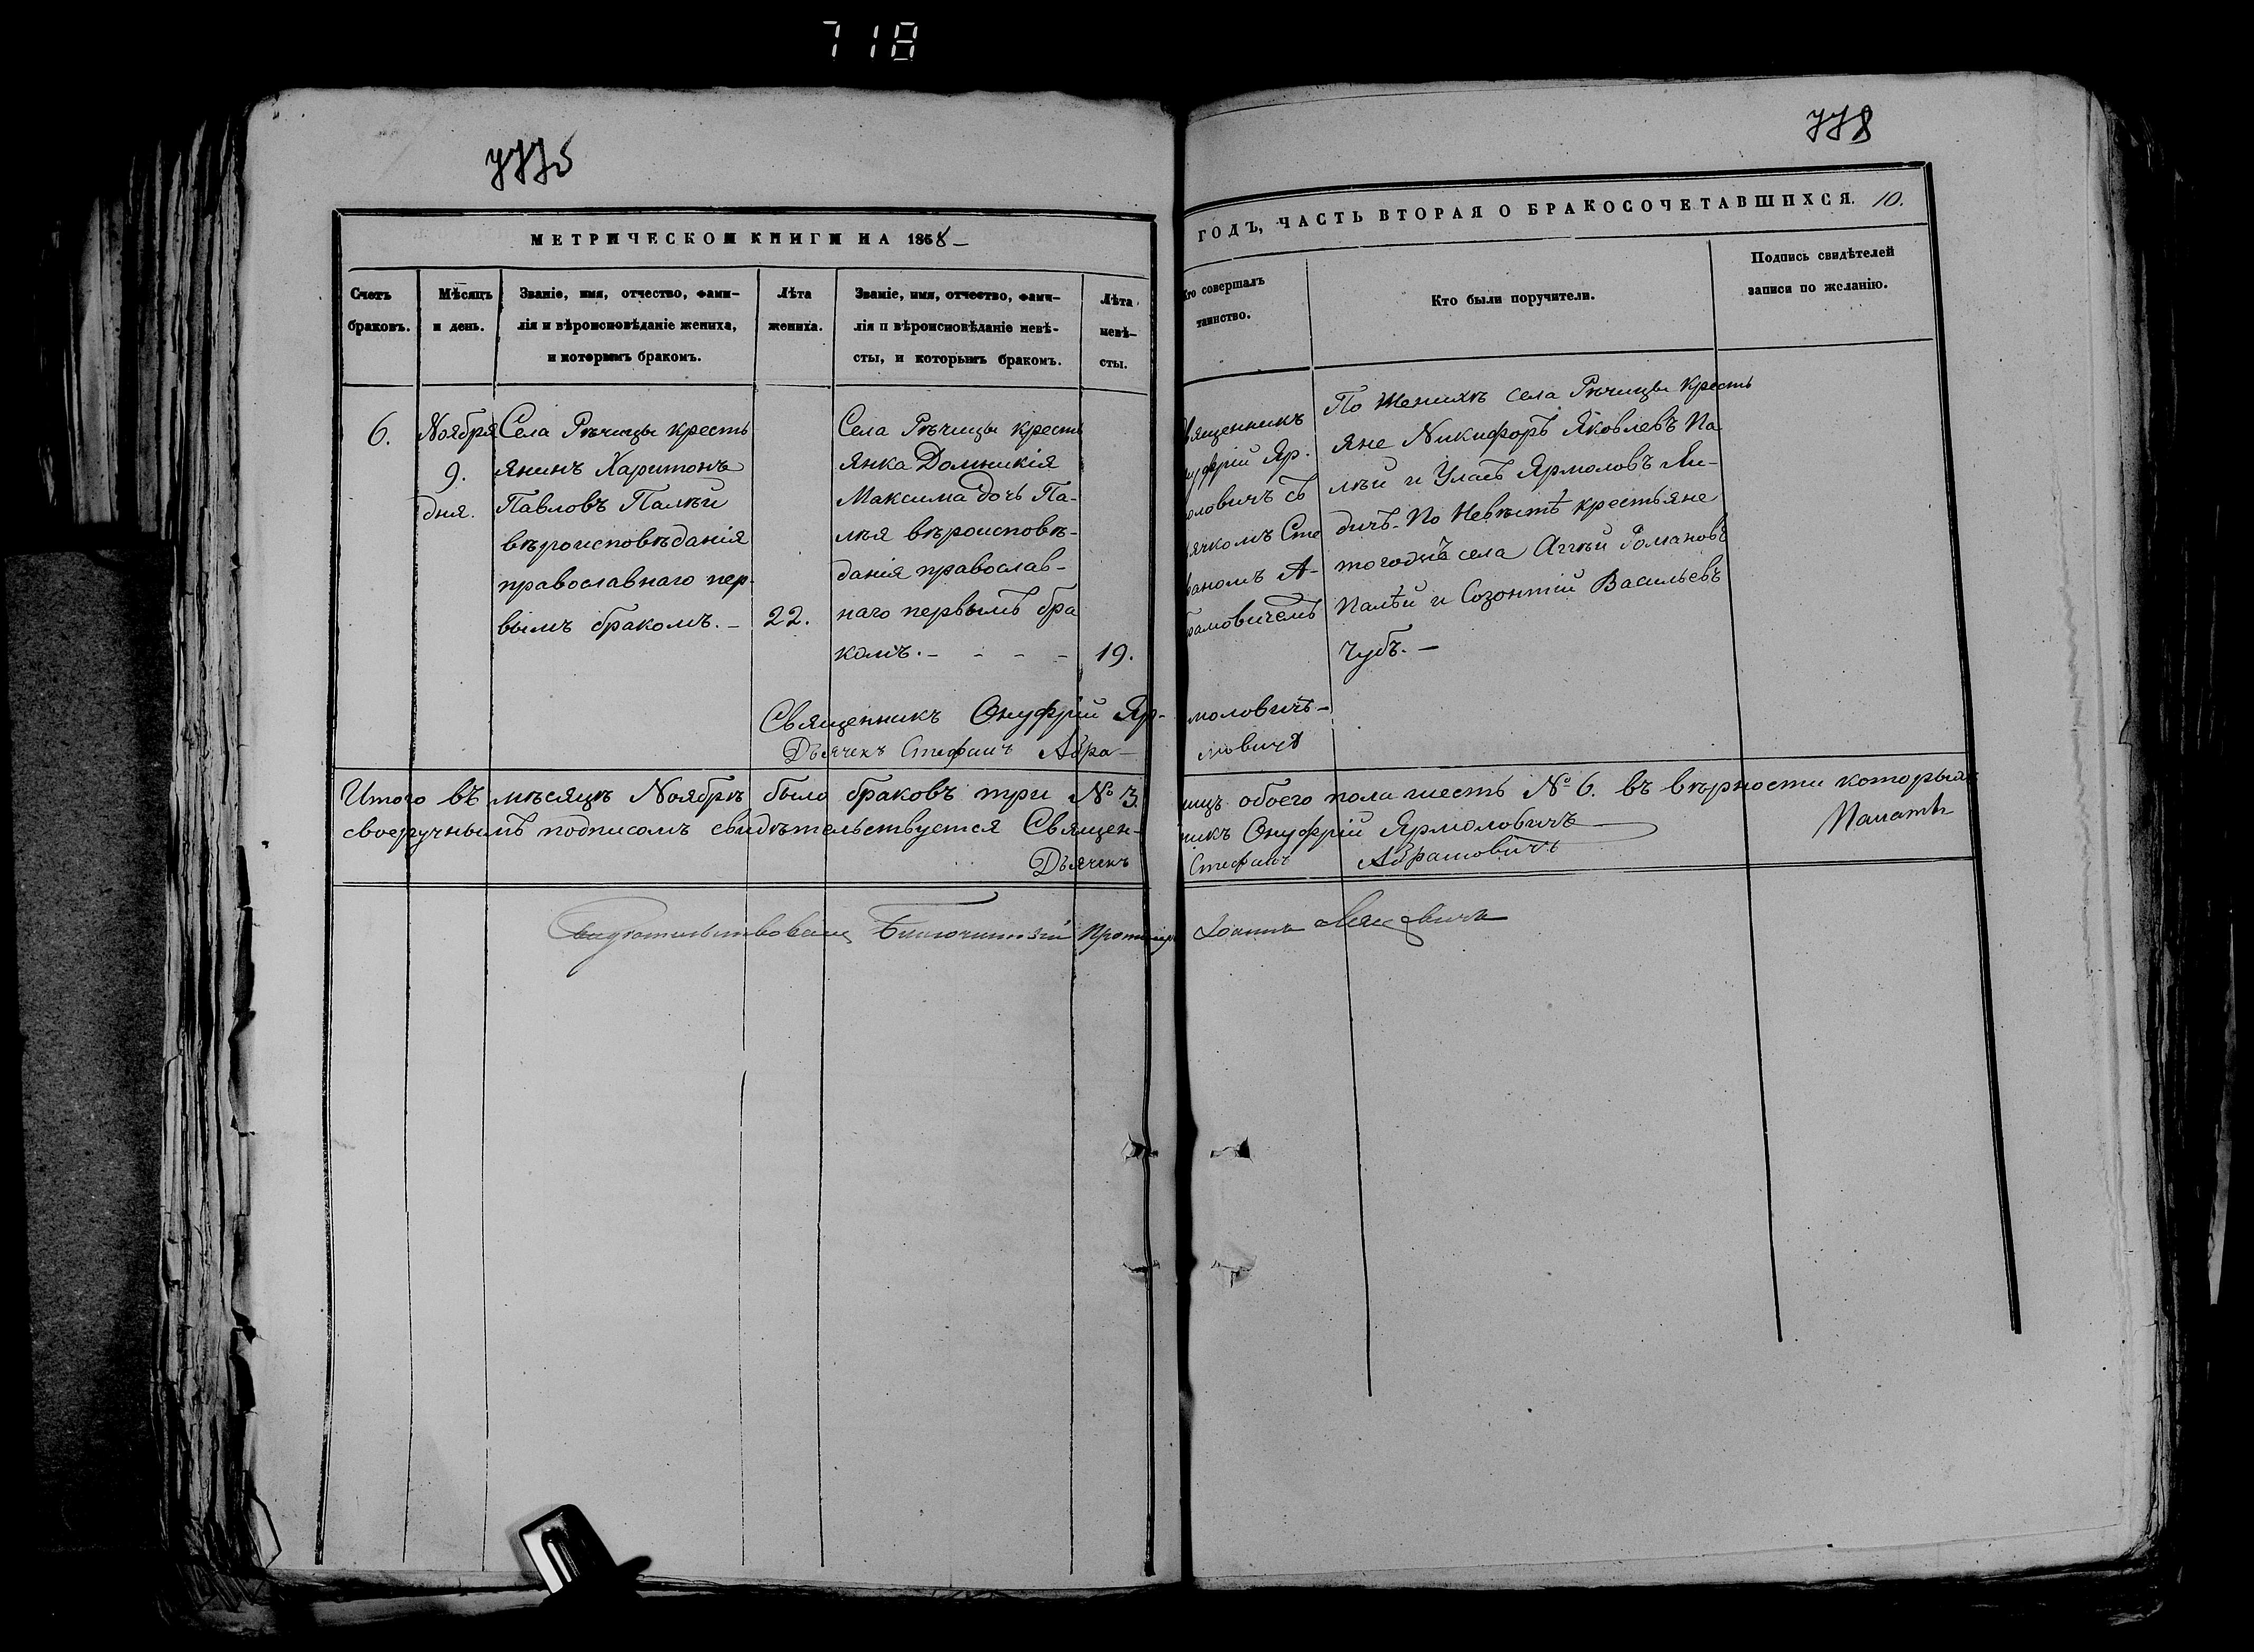 718
7775
778
МЕТРИЧЕСКОЙ КНИГИ НА 1868 –
ГОДЪ, ЧАСТЬ ВТОРАЯ О БРАКОСОЧЕТАВШИХСЯ. 10.
Счетъ
браковъ.
Мѣсяцъ
и день.
Званіе, имя, отчество, фами-
лія и вѣроисповѣданіе жениха,
и которымъ бракомъ.
Лѣта
жениха.
Званіе, имя, отчество, фами-
лія и вѣроисповѣданіе невѣ-
сты, и которымъ бракомъ.
Лѣта
невѣ-
сты.
Кто совершалъ
таинство.
Кто были поручители.
Подпись свидѣтелей
записи по желанію.
6.
Ноября
9.
дня.
Села Рѣчицы кресть
янинъ Харитонъ
Павловъ Палѣй
вѣроисповѣданія
православнаго пер-
вымъ бракомъ. –
22.
Села Рѣчицы кресть
янка Домникія
Максима дочь Па-
лѣя вѣроисповѣ-
данія православ-
наго первымъ бра
комъ. – - - –
19.
вященникъ
нуфрій Яр.
оловичъ съ
ячкомъ Сте
аномъ А-
рамовичемъ
По Женихѣ села Рѣчицы кресть
яне Никифоръ Яковлевъ Па
лѣй и Уласъ Ярмоловъ Ли-
дичъ. По Невѣстѣ крестьяне
тогожъ села Аггѣй Романовъ
Палѣй и Созонтій Васильевъ
Чубъ. –
Священникъ Онуфрій Яр-моловичъ –
Дьячекъ Стефанъ Абра-мовичъ
Итого въ мѣсяцѣ Ноябрѣ было браковъ три № 3. лицъ обоего пола шесть № 6. въ вѣрности которыхъ
своеручнымъ подписомъ свидѣтельствуется Священ-никъ Онуфрій Ярмоловичъ
Дьячекъ Стефанъ Абрамовичъ
Благочинный Протоіер Іоаннъ